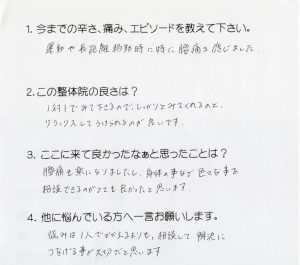 1. 今までの辛さ、痛み、エピソードを教えて下さい。
運動や長距離移動時に特に腰痛を感じました。
2.この整体院の良さは？
1対1でみて下さるので、しっかりとみてくれるのと、
リラックスしてうけられるのが良いです。
3. ここに来て良かったなぁと思ったことは？
腰痛も楽になりましたし、身体の事など色々な事を
相談できるのがとても良かったと思います。
4. 他に悩んでいる方へ一言お願いします。
悩みは1人でかかえるよりも、相談して解決に
つなげる事が大切だと思います。